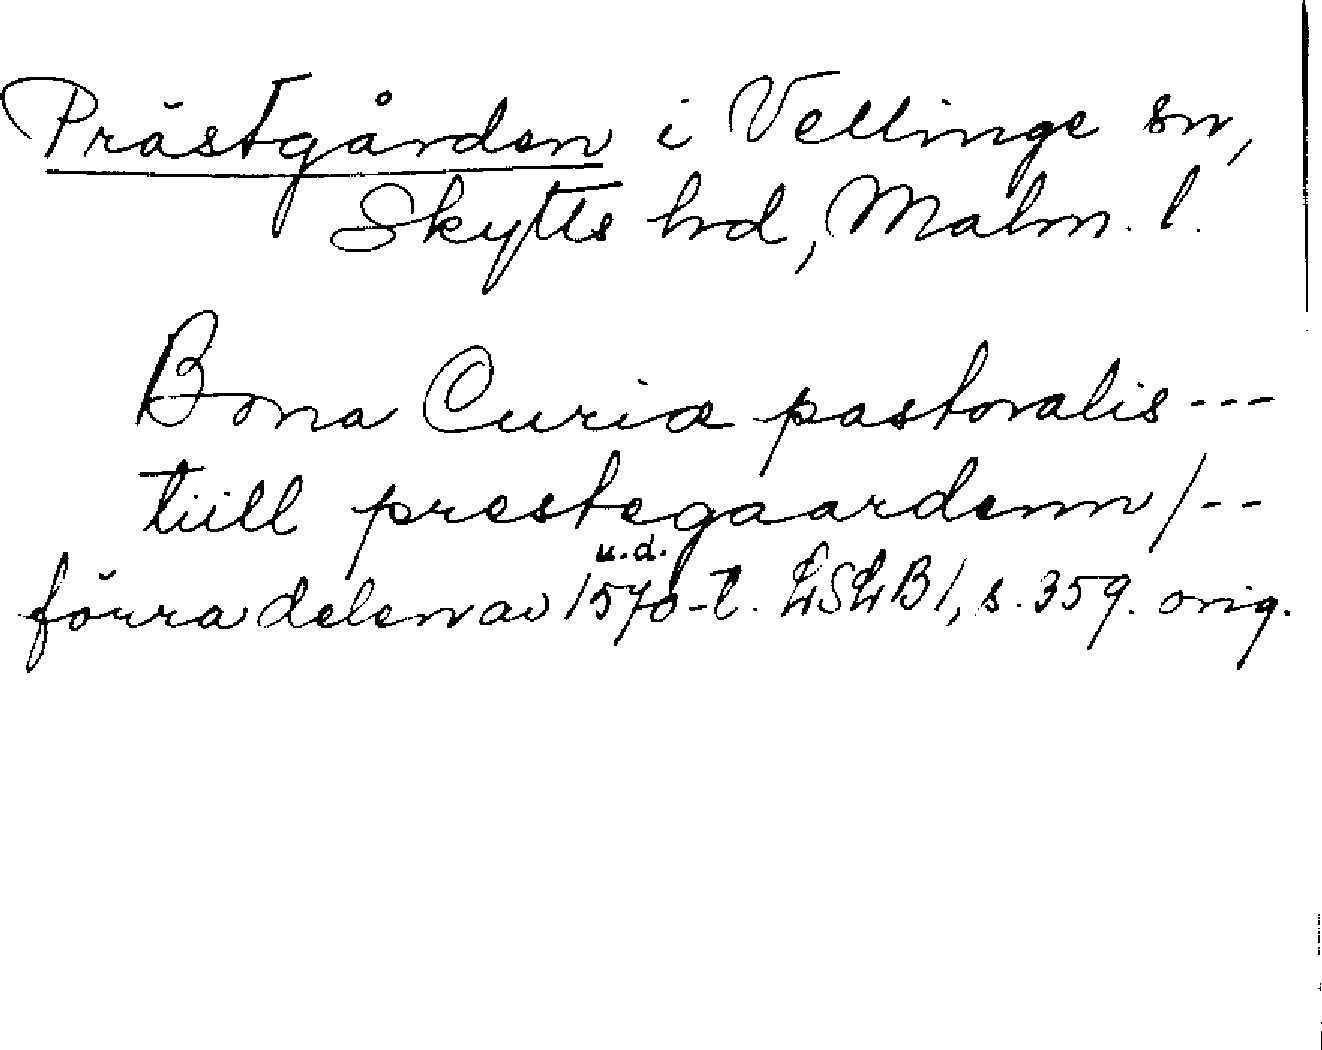 Prästgården i Vellinge sn,
Skytts hd, Malm. l.
Bona Curiæ pastoralis ---
tiill prestegaardenn /--
u.d.
förra delen av 1570-t. LSLB1, s. 359. orig.